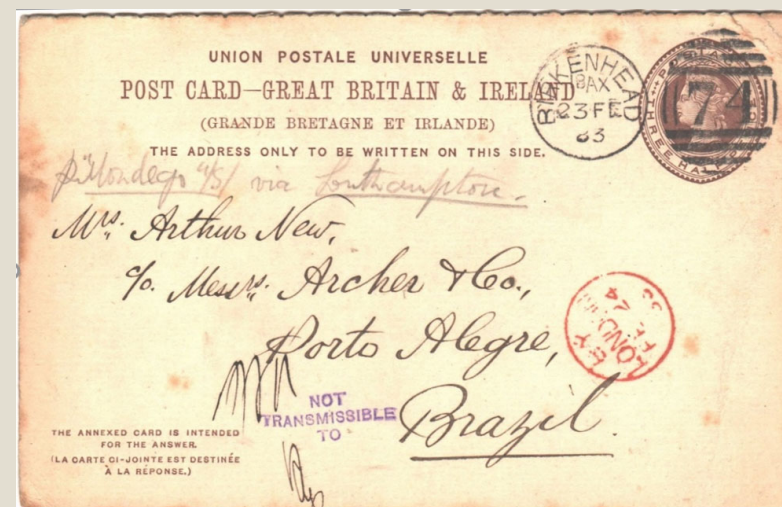 UNION POSTALE UNIVERSELLE
POST CARD—GREAT BRITAIN & IRELAND
(GRANDE BRETAGNE ET IRLANDE)
THE ADDRESS ONLY TO BE WRITTEN ON THIS SIDE.
BIRKENHEAD
23 FE
83
74
THREE HALF
via Southampton.
Mrs. Arthur New,
c/o. Messrs. Archer & Co.,
Porto Alegre,
Brazil.
LONDON
24
NOT
TRANSMISSIBLE
TO
THE ANNEXED CARD IS INTENDED
FOR THE ANSWER.
(LA CARTE CI-JOINTE EST DESTINÉE
À LA RÉPONSE.)